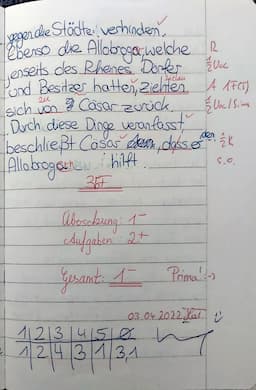 gegen die Städte verhinden,
ebenso die Allobroger, welche
jenseits des Rhenes, Dörfer R
und Besitzer hatten, ziehten ½Voc
sich von Cäsar zurück. A
Durch diese Dinge veranlasst,
beschließt Cäsar, dass er den ½K
Allobrogern hilft. s.o.
Übersetzung: 1-
Aufgaben: 2+
Gesamt: 1- Prima!
03.04.2022
1 2 3 4 5 6
1 2 4 3 1 3,1